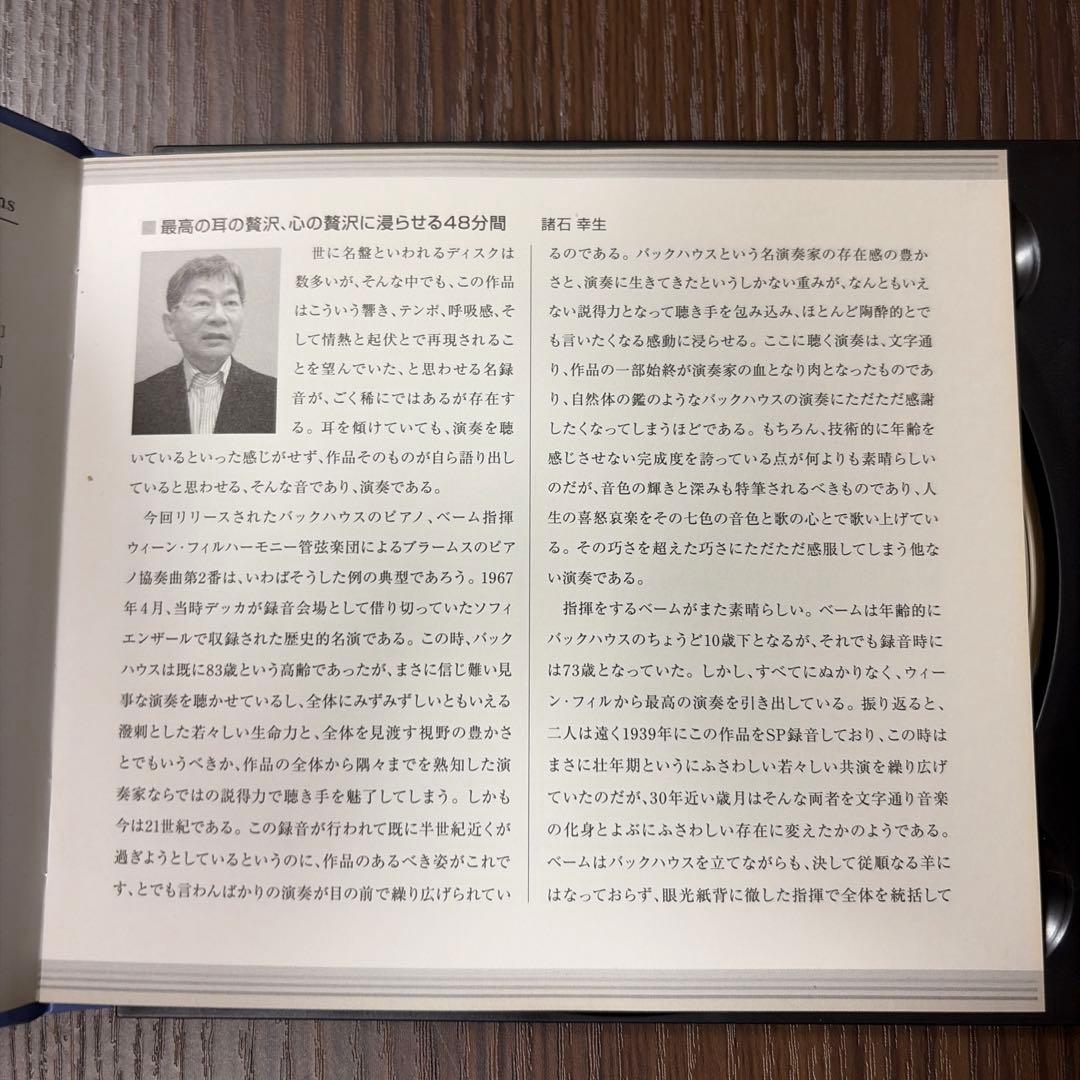 ns
■最高の耳の贅沢、心の贅沢に浸らせる48分間 諸石 幸生
世に名盤といわれるディスクは
数多いが、そんな中でも、この作品
はこういう響き、テンポ、呼吸感、そ
して情熱と起伏とで再現されるこ
とを望んでいた、と思わせる名録
音が、ごく稀にではあるが存在す
る。耳を傾けていても、演奏を聴
いているといった感じがせず、作品そのものが自ら語り出し
ていると思わせる、そんな音であり、演奏である。
今回リリースされたバックハウスのピアノ、ベーム指揮
ウィーン・フィルハーモニー管弦楽団によるブラームスのピア
ノ協奏曲第2番は、いわばそうした例の典型であろう。1967
年4月、当時デッカが録音会場として借り切っていたソフィ
エンザールで収録された歴史的名演である。この時、バック
ハウスは既に83歳という高齢であったが、まさに信じ難い見
事な演奏を聴かせているし、全体にみずみずしいともいえる
潑剌とした若々しい生命力と、全体を見渡す視野の豊かさ
とでもいうべきか、作品の全体から隅々までを熟知した演
奏家ならではの説得力で聴き手を魅了してしまう。しかも
今は21世紀である。この録音が行われて既に半世紀近くが
過ぎようとしているというのに、作品のあるべき姿がこれで
す、とでも言わんばかりの演奏が目の前で繰り広げられてい
るのである。バックハウスという名演奏家の存在感の豊か
さと、演奏に生きてきたというしかない重みが、なんともいえ
ない説得力となって聴き手を包み込み、ほとんど陶酔的とで
も言いたくなる感動に浸らせる。ここに聴く演奏は、文字通
り、作品の一部始終が演奏家の血となり肉となったものであ
り、自然体の鑑のようなバックハウスの演奏にただただ感謝
したくなってしまうほどである。もちろん、技術的に年齢を
感じさせない完成度を誇っている点が何よりも素晴らしい
のだが、音色の輝きと深みも特筆されるべきものであり、人
生の喜怒哀楽をその七色の音色と歌の心とで歌い上げてい
る。その巧さを超えた巧さにただただ感服してしまう他な
い演奏である。
指揮をするベームがまた素晴らしい。ベームは年齢的に
バックハウスのちょうど10歳下となるが、それでも録音時に
は73歳となっていた。しかし、すべてにぬかりなく、ウィー
ン・フィルから最高の演奏を引き出している。振り返ると、
二人は遠く1939年にこの作品をSP録音しており、この時は
まさに壮年期というにふさわしい若々しい共演を繰り広げ
ていたのだが、30年近い歳月はそんな両者を文字通り音楽
の化身とよぶにふさわしい存在に変えたかのようである。
ベームはバックハウスを立てながらも、決して従順なる羊に
はなっておらず、眼光紙背に徹した指揮で全体を統括して